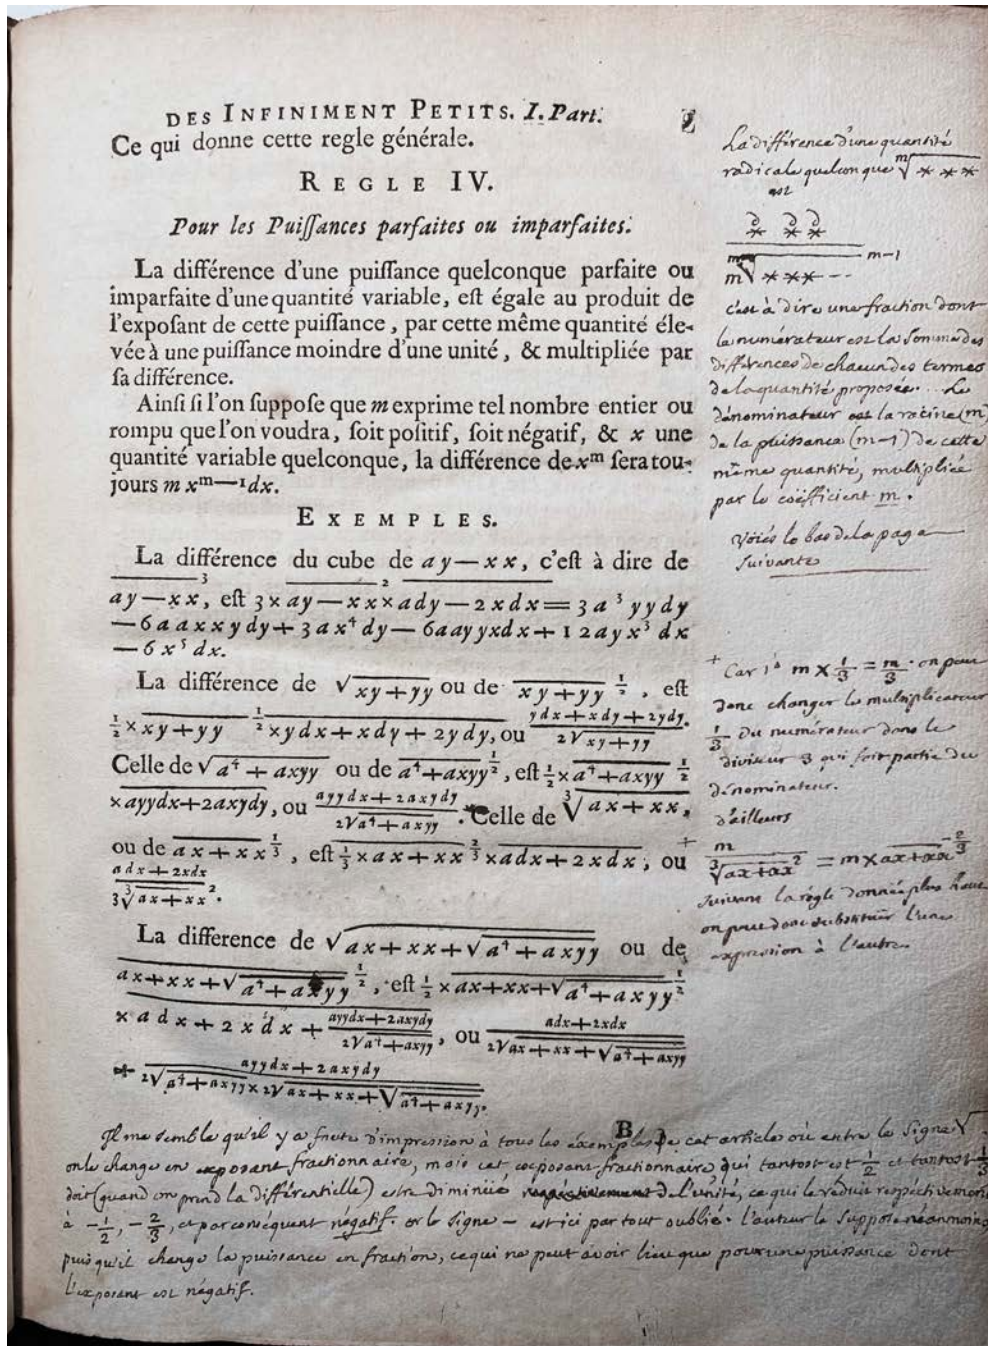 DES INFINIMENT PETITS. I. Part.
Ce qui donne cette regle générale.
REGLE IV.
Pour les Puiſſances parfaites ou imparfaites.
La différence d'une puiſſance quelconque parfaite ou
imparfaite d'une quantité variable, eſt égale au produit de
l'expoſant de cette puiſſance, par cette même quantité éle-
vée à une puiſſance moindre d'une unité, & multipliée par
ſa différence.
Ainſi ſi l'on ſuppoſe que m exprime tel nombre entier ou
rompu que l'on voudra, ſoit poſitif, ſoit négatif, & x une
quantité variable quelconque, la différence de x^m ſera tou-
jours m x^{m—1} dx.
EXEMPLES.
La différence du cube de ay — xx, c'eſt à dire de
\overline{ay — xx}^3, eſt 3 × \overline{ay — xx}^2 × \overline{ady — 2xdx} = 3a^3yydy
— 6aaxxydy + 3ax^4dy — 6aayyxdx + 12ayx^3dx
— 6x^5dx.
La différence de √\overline{xy + yy} ou de \overline{xy + yy}^{1/2}, eſt
1/2 × \overline{xy + yy}^{1/2} × \overline{ydx + xdy + 2ydy}, ou \frac{ydx + xdy + 2ydy}{2√\overline{xy + yy}}.
Celle de √\overline{a^4 + axyy} ou de \overline{a^4 + axyy}^{1/2}, eſt 1/2 × \overline{a^4 + axyy}^{1/2}
× \overline{ayydx + 2axydy}, ou \frac{ayydx + 2axydy}{2√\overline{a^4 + axyy}}. Celle de ∛\overline{ax + xx},
ou de \overline{ax + xx}^{1/3}, eſt 1/3 × \overline{ax + xx}^{2/3} × \overline{adx + 2xdx}, ou +
\frac{adx + 2xdx}{3∛\overline{ax + xx}^2}.
La difference de √\overline{ax + xx + √\overline{a^4 + axyy}} ou de
\overline{ax + xx + √\overline{a^4 + axyy}}^{1/2}, eſt 1/2 × \overline{ax + xx + √\overline{a^4 + axyy}}^{1/2}
× \overline{adx + 2xdx + \frac{ayydx + 2axydy}{2√\overline{a^4 + axyy}}}, ou \frac{adx + 2xdx}{2√\overline{ax + xx + √\overline{a^4 + axyy}}}
+ \frac{ayydx + 2axydy}{2√\overline{a^4 + axyy} × 2√\overline{ax + xx + √\overline{a^4 + axyy}}}.
B
La différence d'une quantité
radicale quelconque \sqrt[m]{***}
est
m—1
c'est à dire une fraction dont
le numérateur est la somme des
différences de chacun des termes
de la quantité proposée.... Le
dénominateur est la racine (m)
de la puissance (m—1) de cette
même quantité, multipliée
par le coëfficient m.
Voiés le bas de la page
suivante
+ Car 1° m × 1/3 = m/3. on peut
donc changer le multiplicateur
1/3 du numérateur dans le
diviseur 3 qui fait partie du
dénominateur.
d'ailleurs
\frac{m}{∛\overline{ax+xx}^2} = m × \overline{ax+xx}^{-2/3}
suivant la règle donnée plus haut
on peut donc substituer l'une
expression à l'autre.
Il me semble qu'il y a faute d'impression à tous les exemples de cet article où entre le signe √
on le change en exposant fractionnaire, mais cet exposant fractionnaire qui tantost est 1/2 et tantost 1/3
doit (quand on prend la différentielle) estre diminüé de l'unité, ce qui le réduit respéctivement
à — 1/2, — 2/3, et par conséquent négatif. or le signe — est ici par tout oublié. l'auteur le suppose néanmoins,
puisqu'il change la puissance en fraction, ce qui ne peut avoir lieu que pour une puissance dont
l'exposant est négatif.